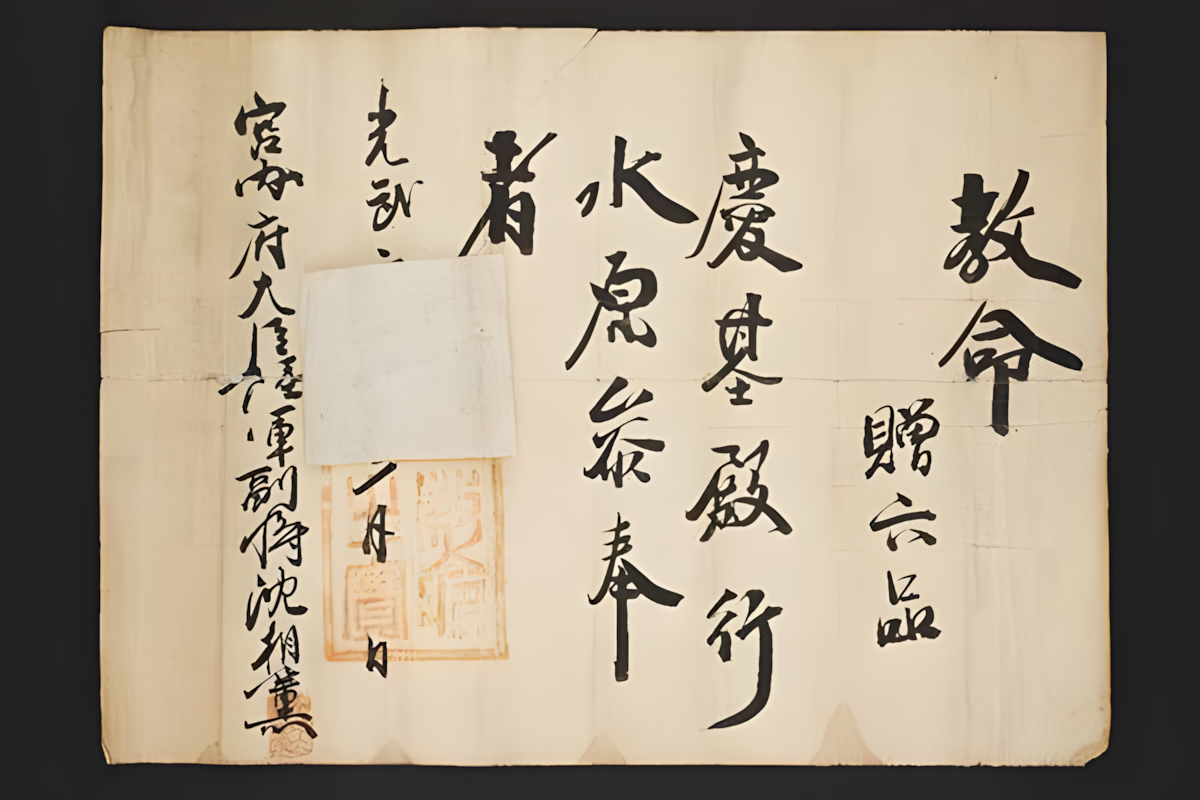 教命
贈六品
慶基殿行
水原叅奉
者
光武 月 日
宮內府大臣陸軍副將沈相薰